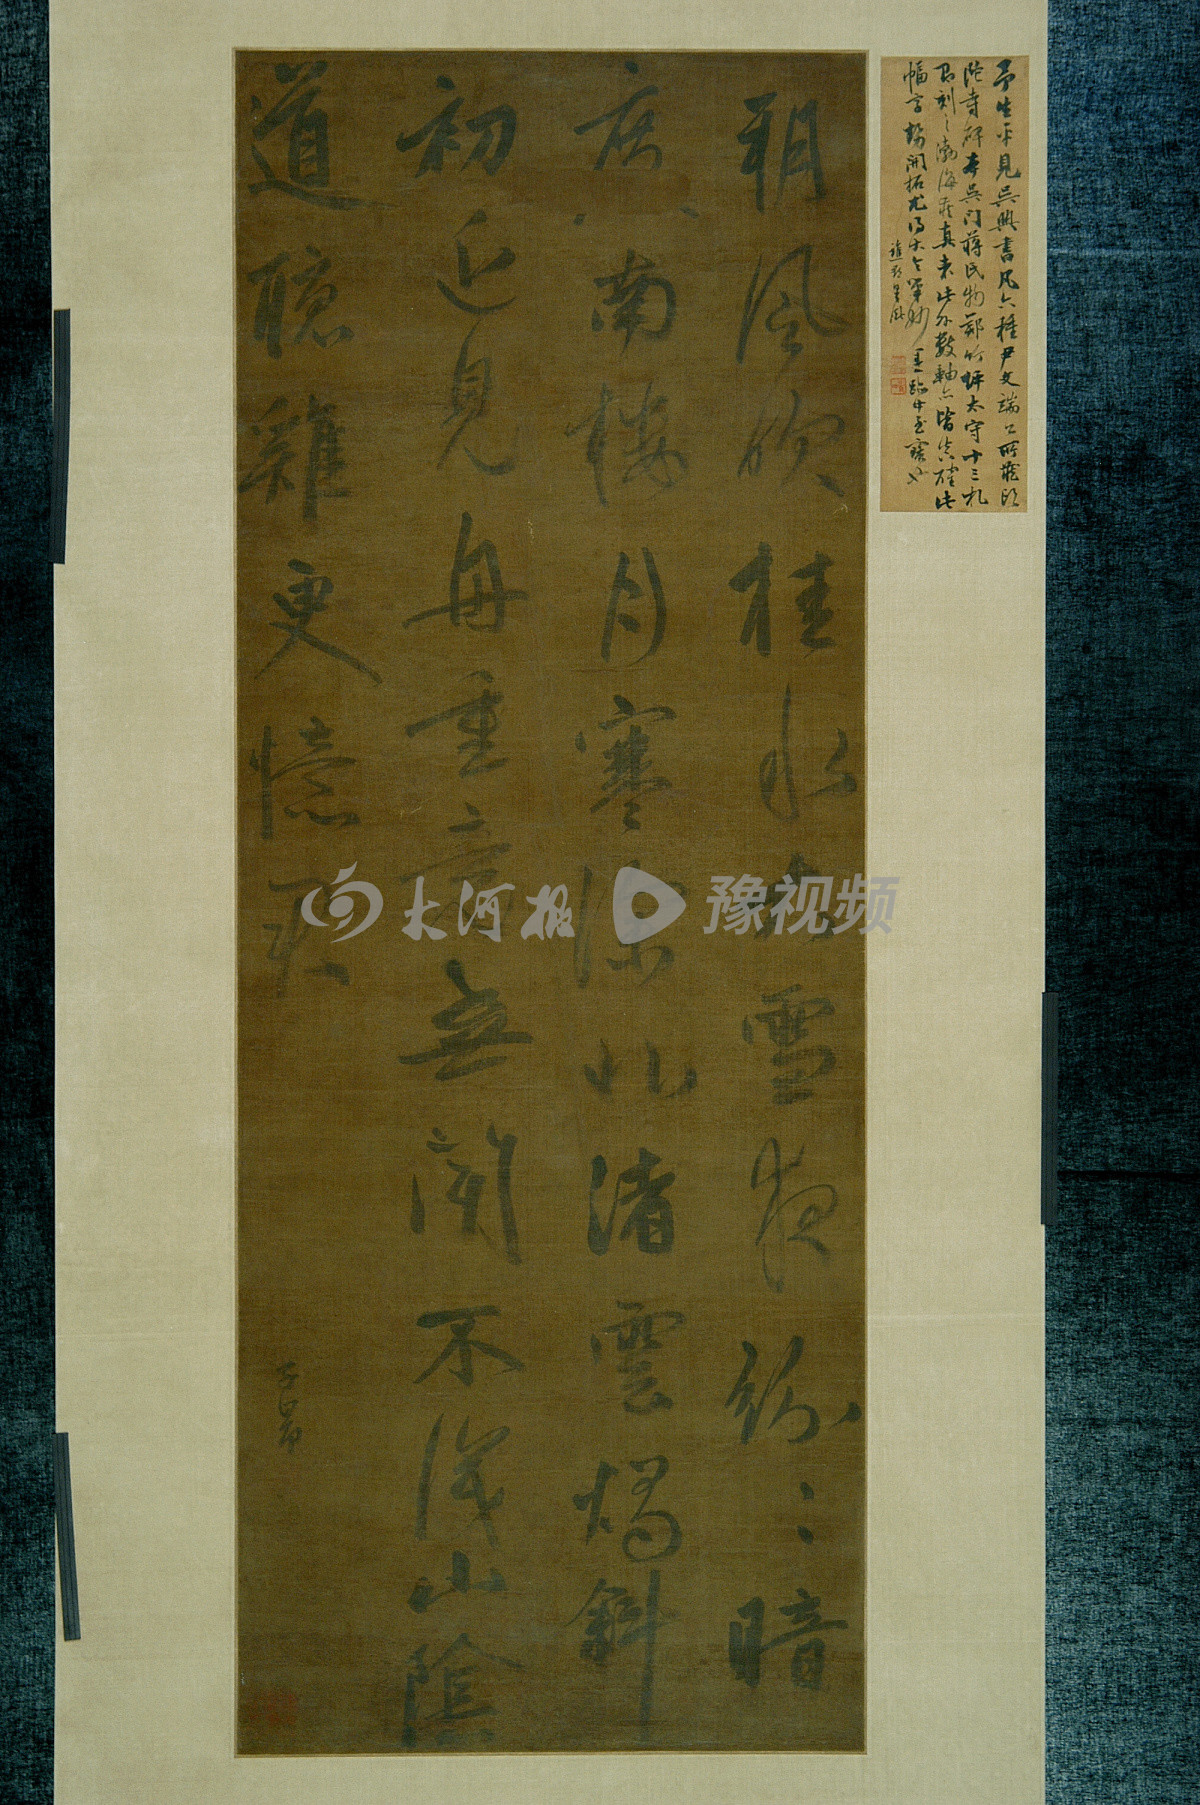 予生平見吳興書凡六種尹文端公所藏頭
陀寺碑本吳門蔣氏物鄭竹坪太守十三札
刻之渤海藏真未此外數軸亦皆真確此
幅字勢開拓尤得大令筆妙
朔風吹桂水雪夜紛〻暗
度南樓月寒深北渚雲燭斜
初近見舟重竟無聞不識山陰
道聽雞更憶君
子昂
大河报 豫视频